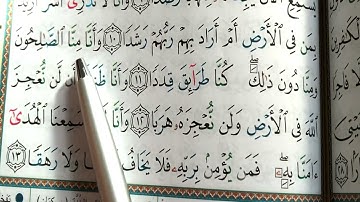 وَأَنَّا لَا نَدْرِىٓ أَشَرٌّ
بِمَن فِى ٱلْأَرْضِ أَمْ أَرَادَ بِهِمْ رَبُّهُمْ رَشَدًا ١٠ وَأَنَّا مِنَّا ٱلصَّـٰلِحُونَ
وَمِنَّا دُونَ ذَٰلِكَ ۖ كُنَّا طَرَآئِقَ قِدَدًا ١١ وَأَنَّا ظَنَنَّآ أَن لَّن نُّعْجِزَ
ٱللَّهَ فِى ٱلْأَرْضِ وَلَن نُّعْجِزَهُۥ هَرَبًا ١٢ وَأَنَّا لَمَّا سَمِعْنَا ٱلْهُدَىٰٓ
ءَامَنَّا بِهِۦ ۖ فَمَن يُؤْمِنۢ بِرَبِّهِۦ فَلَا يَخَافُ بَخْسًا وَلَا رَهَقًا ١٣